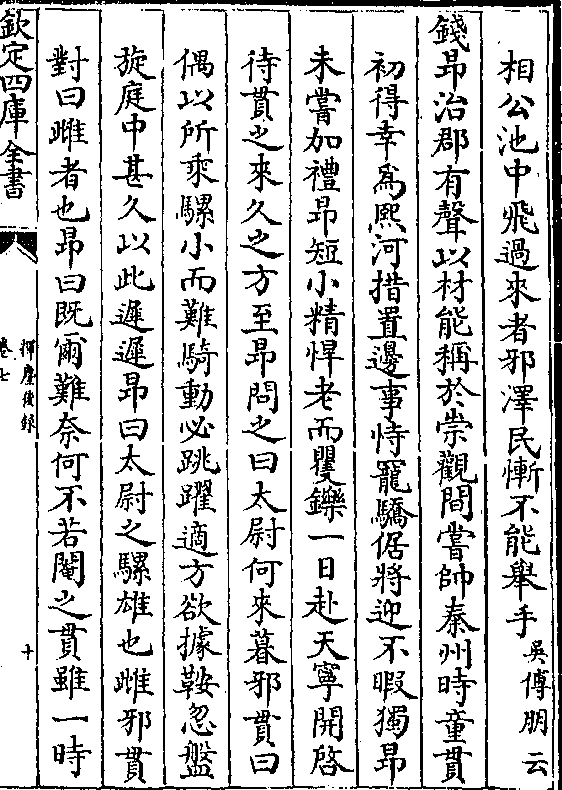 相公池中飛過來者邪澤民慚不能舉手吳傅朋云
錢昂治郡有聲以材能稱於崇觀間嘗帥秦州時童貫
初得幸為熙河措置邊事恃寵驕倨將迎不暇獨昂
未嘗加禮昂短小精悍老而矍鑠一日赴天寧開啓
待貫之來久之方至昂問之曰太尉何來暮邪貫曰
偶以所乘騾小而難騎動必跳躍適方欲據鞍忽盤
旋庭中甚久以此遲遲昂曰太尉之騾雄也雌邪貫
對曰雌者也昂曰既爾難奈何不若閹之貫雖一時
欽定四庫全書
揮麈後録
卷七
十